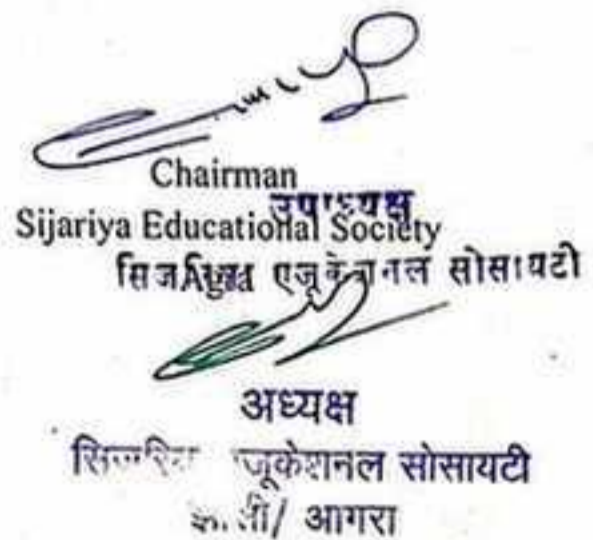 Chairman
उपाध्यक्ष
Sijariya Educational Society
एजूकेशनल सोसायटी
अध्यक्ष
एजूकेशनल सोसायटी
आगरा